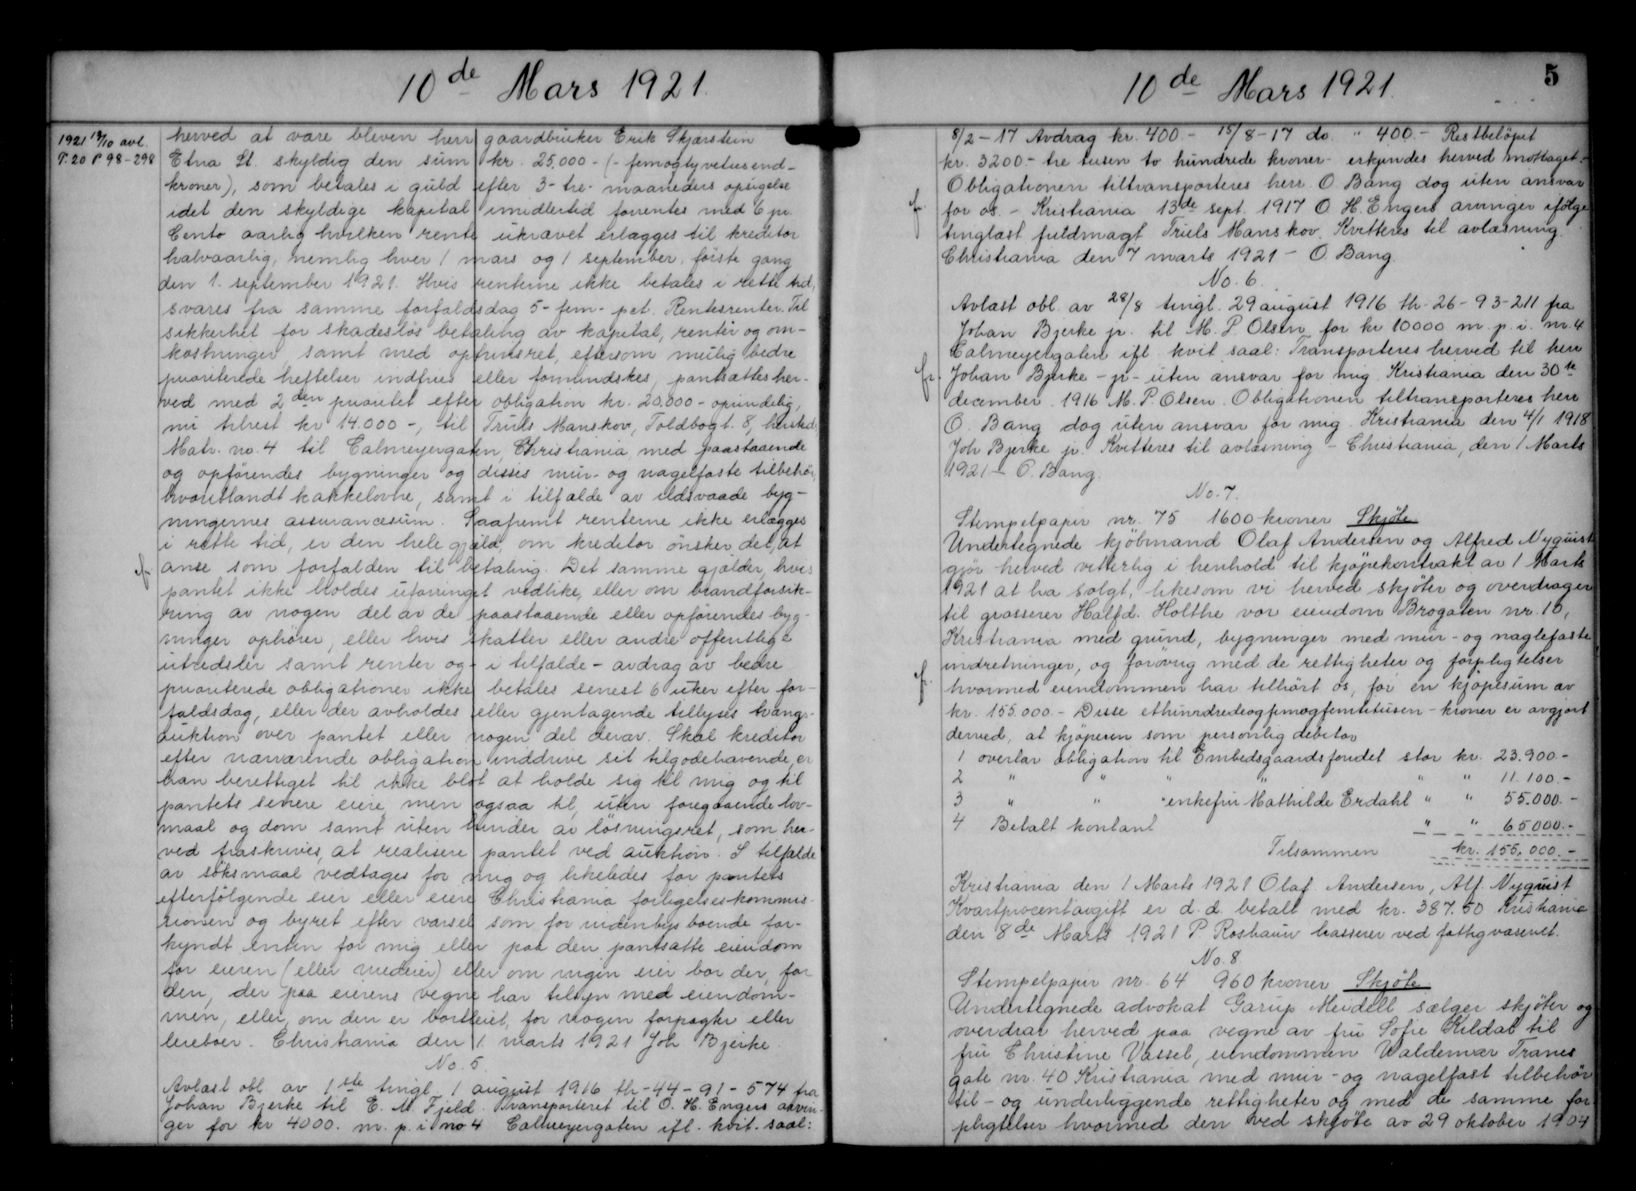 10de Mars 1921.
1921 19/10 avl.
T. 20 P. 98-298
herved at være bleven herr gaardbruker Erik Skjærstein
Etna St. skyldig den sum kr. 25.000 - (- femogtyvetusend-
kroner), som betales i guld efter 3-tre- maaneders opsigelse
idet den skyldige kapital imidlertid forrentes med 6 pr.
Cento aarlig hvilken rente ukrævet erlægges til kreditor
halvaarlig, nemlig hver 1 mars og 1 september, første gang
den 1. september 1921. Hvis renterne ikke betales i rette tid,
svares fra samme forfaldsdag 5-fem- pct. Rentesrenter. Til
sikkerhet for skadesløs betaling av kapital, renter og om-
kostninger samt med optrinsret, eftersom mulig bedre
prioriterede heftelser indfries eller formindskes, pantsættes her-
ved med 2den prioritet efter obligation kr. 20.000 - oprindelig,
nu tilrest kr 14.000 -, til Truls Manskov, Toldbogt. 8, hersted,
Matr. no. 4 til Calmeyergaten, Christiania, med paastaaende
og opførendes bygninger og disses mur- og nagelfaste tilbehør,
hvoriblandt kakkelovne, samt i tilfælde av ildsvaade byg-
ningernes assurancesum. Saafremt renterne ikke erlægges
i rette tid, er den hele gjæld, om kreditor ønsker det, at
anse som forfalden til betaling. Det samme gjælder, hvis
pantet ikke holdes uforringet vedlike, eller om brandforsik-
ring av nogen del av de paastaaende eller opførendes byg-
ninger ophører, eller hvis skatter eller andre offentlige
utredsler samt renter og - i tilfælde - avdrag av bedre
prioriterede obligationer ikke betales senest 6 uker efter for-
faldsdag, eller der avholdes eller gjentagende tillyses tvangs-
auktion over pantet eller nogen del derav. Skal kreditor
efter nærværende obligation inddrive sit tilgodehavende, er
han berettiget til ikke blot at holde sig til mig og til
pantets senere eiere, men ogsaa til, uten foregaaende lov-
maal og dom samt uten hinder av løsningsret, som her-
ved fraskrives, at realisere pantet ved auktion. I tilfælde
av søksmaal vedtages for mig og likeledes for pantets
efterfølgende eier eller eiere Christiania forligelseskommis-
sionen og byret efter varsel som for indenbys boende for-
kyndt enten for mig eller paa den pantsatte eiendom
for eieren (eller medeier) eller om ingen eier bor der, for
den, der paa eierens vegne har tilsyn med eiendom-
men, eller, om den er bortleiet, for nogen forpagter eller
leieboer. Christiania den 1 marts 1921 Joh Bjerke.
No. 5.
Avlæst obl. av 1ste tingl. 1 august 1916 th-44-91-574 fra
Johan Bjerke til E. M. Fjeld. Transporteret til O. H. Engers arvin-
ger for kr 4000. m. p. i no 4 Calmeyergaten ifl. kvit. saal:
10de Mars 1921.
5
8/2-17 Avdrag kr. 400 - 15/8-17 do. " 400 - Restbeløpet
kr. 3200 - tre tusen to hundrede kroner - erkjendes herved mottaget.-
Obligationen tiltransporteres herr O. Bang dog uten ansvar
for os. - Kristiania 13de sept. 1917 O. H. Engers arvinger ifølge
tinglæst fuldmagt Truls Manskov. Kvitteres til avlæsning.
Christiania den 7 marts 1921 - O. Bang.
No. 6.
Avlæst obl. av 28/8 tingl. 29 august 1916 th-26-93-211 fra
Johan Bjerke jr. til M. P. Olsen for kr 10000 m. p. i. nr. 4
Calmeyergaten ifl. kvit saal: Transporteres herved til herr
Johan Bjerke - jr - uten ansvar for mig. Kristiania den 30te
december 1916 M. P. Olsen. Obligationen tiltransporteres herr
O. Bang dog uten ansvar for mig. Kristiania den 4/1 1918
Joh Bjerke jr. Kvitteres til avlæsning - Christiania, den 1 Marts
1921 - O. Bang.
No. 7.
Stempelpapir nr. 75 1600 kroner Skjøte
Undertegnede kjøbmand Olaf Andersen og Alfred Nyquist
gjør herved vitterlig i henhold til kjøpekontrakt av 1 Marts
1921 at ha solgt, likesom vi herved skjøter og overdrager
til grosserer Halfd. Holthe vor eiendom Brogaten nr. 10,
Kristiania med grund, bygninger med mur- og naglefaste
indretninger, og forøvrig med de rettigheter og forpligtelser
hvormed eiendommen har tilhørt os, for en kjøpesum av
kr. 155.000 - Disse ethundredeogfemogfemtitusen - kroner er avgjort
derved, at kjøperen som personlig debitor
1 overtar obligation til Embedsgaardsfondet stor kr. 23.900.-
2 " " " " " " 11.100.-
3 " " " enkefru Mathilde Erdahl " " 55.000.-
4 Betalt kontant " " 65000.-
Tilsammen kr. 155.000.-
Kristiania den 1 Marts 1921 Olaf Andersen, Alf. Nyquist
Kvartprocentavgift er d. d. betalt med kr. 387.50 Kristiania
den 8de Marts 1921 P. Roshauw kasserer ved fattigvæsenet.
No. 8
Stempelpapir nr. 64 960 kroner Skjøte
Undertegnede advokat Garup Meidell sælger skjøter og
overdrar herved paa vegne av fru Sofie Kildal til
fru Christine Vassel, eiendommen Waldemar Tranes
gate nr. 40 Kristiania med mur- og nagelfast tilbehør
til- og underliggende rettigheter og med de samme for
pligtelser hvormed den ved skjøte av 29 oktober 1904